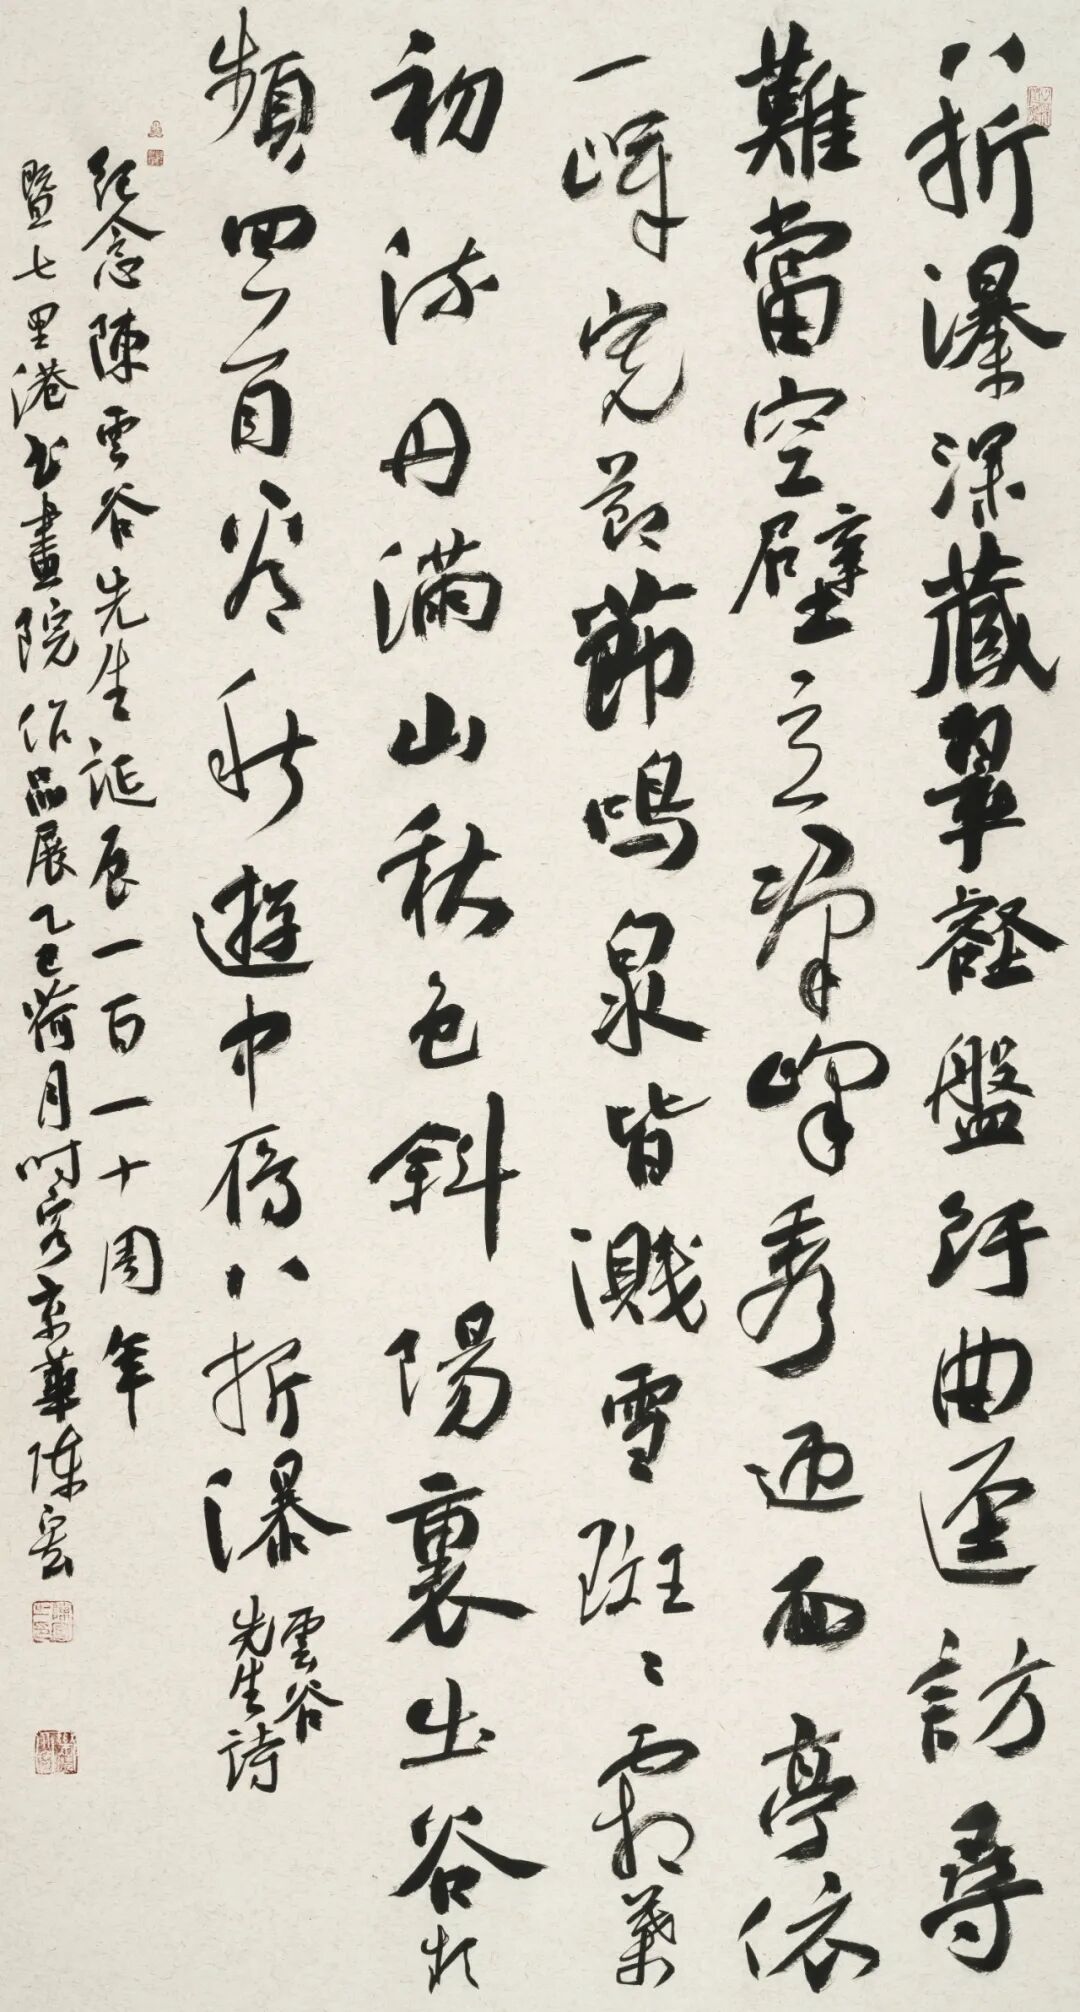 八折瀑深藏翠壑盤紆曲逕訪尋
難當空壁立峰秀迎面亭依
一寬節節鳴泉皆濺雪斑斑霜葉
初流丹滿山秋色斜陽裏出谷頻
頻回首看秋遊中雁八折瀑
雲谷
先生詩
紀念陳雲谷先生誕辰一百一十周年
暨七里港書畫院作品展乙巳荷月時客京華陳